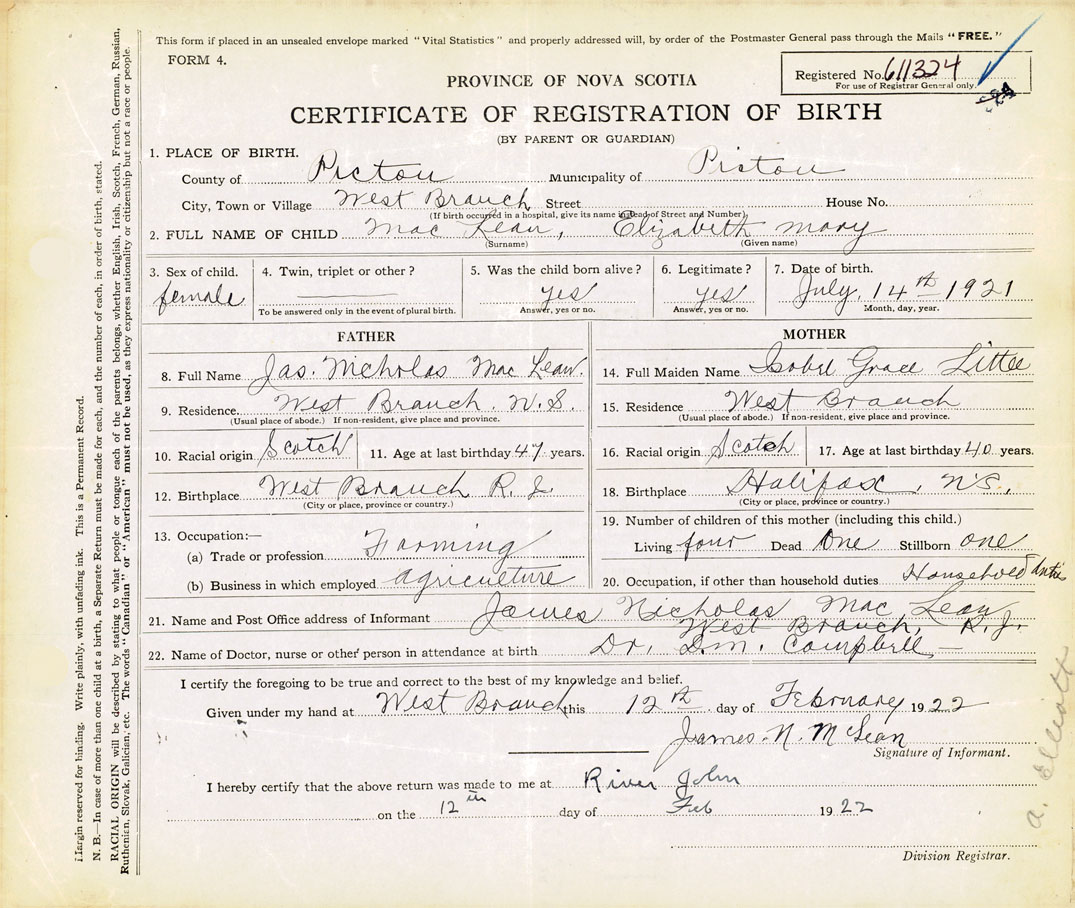 This form if placed in an unsealed envelope marked "Vital Statistics" and properly addressed will, by order of the Postmaster General pass through the Mails "FREE."
FORM 4.
Registered No. 611324
For use of Registrar General only.
PROVINCE OF NOVA SCOTIA
CERTIFICATE OF REGISTRATION OF BIRTH
(BY PARENT OR GUARDIAN)
1. PLACE OF BIRTH.
County of Pictou Municipality of Pictou
City, Town or Village West Branch Street House No.
(If birth occurred in a hospital, give its name instead of Street and Number)
2. FULL NAME OF CHILD Mac Lean, Elizabeth mary
(Surname) (Given name)
3. Sex of child. 4. Twin, triplet or other? 5. Was the child born alive? 6. Legitimate? 7. Date of birth.
female yes yes July, 14th 1921
To be answered only in the event of plural birth. Answer, yes or no. Answer, yes or no. Month, day, year.
FATHER
8. Full Name Jas. Nicholas Mac Lean.
9. Residence. West Branch. N.S.
(Usual place of abode.) If non-resident, give place and province.
10. Racial origin Scotch 11. Age at last birthday 47 years.
12. Birthplace West Branch R. J.
(City or place, province or country.)
13. Occupation:—
(a) Trade or profession Farming
(b) Business in which employed agriculture
MOTHER
14. Full Maiden Name Isobel Grace Little
15. Residence West Branch
(Usual place of abode.) If non-resident, give place and province.
16. Racial origin Scotch 17. Age at last birthday 40 years.
18. Birthplace Halifax, N.S.,
(City or place, province or country.)
19. Number of children of this mother (including this child.)
Living four Dead One Stillborn one
20. Occupation, if other than household duties Household duties
21. Name and Post Office address of Informant James Nicholas Mac Lean
West Branch, R. J.
22. Name of Doctor, nurse or other person in attendance at birth Dr. D.M. Campbell —
I certify the foregoing to be true and correct to the best of my knowledge and belief.
Given under my hand at West Branch this 12th day of February 1922
James. N. McLean
Signature of Informant.
I hereby certify that the above return was made to me at River John
on the 12th day of Feb 1922
Division Registrar.
Margin reserved for binding. Write plainly, with unfading ink. This is a Permanent Record.
N. B.—In case of more than one child at a birth, a Separate Return must be made for each, and the number of each, in order of birth, stated.
RACIAL ORIGIN will be described by stating to what people or tongue each of the parents belongs, whether English, Irish, Scotch, French, German, Russian,
Ruthenian, Slovak, Galician, etc. The words "Canadian" or "American" must not be used, as they express nationality or citizenship but not a race or people.
a. Elliott